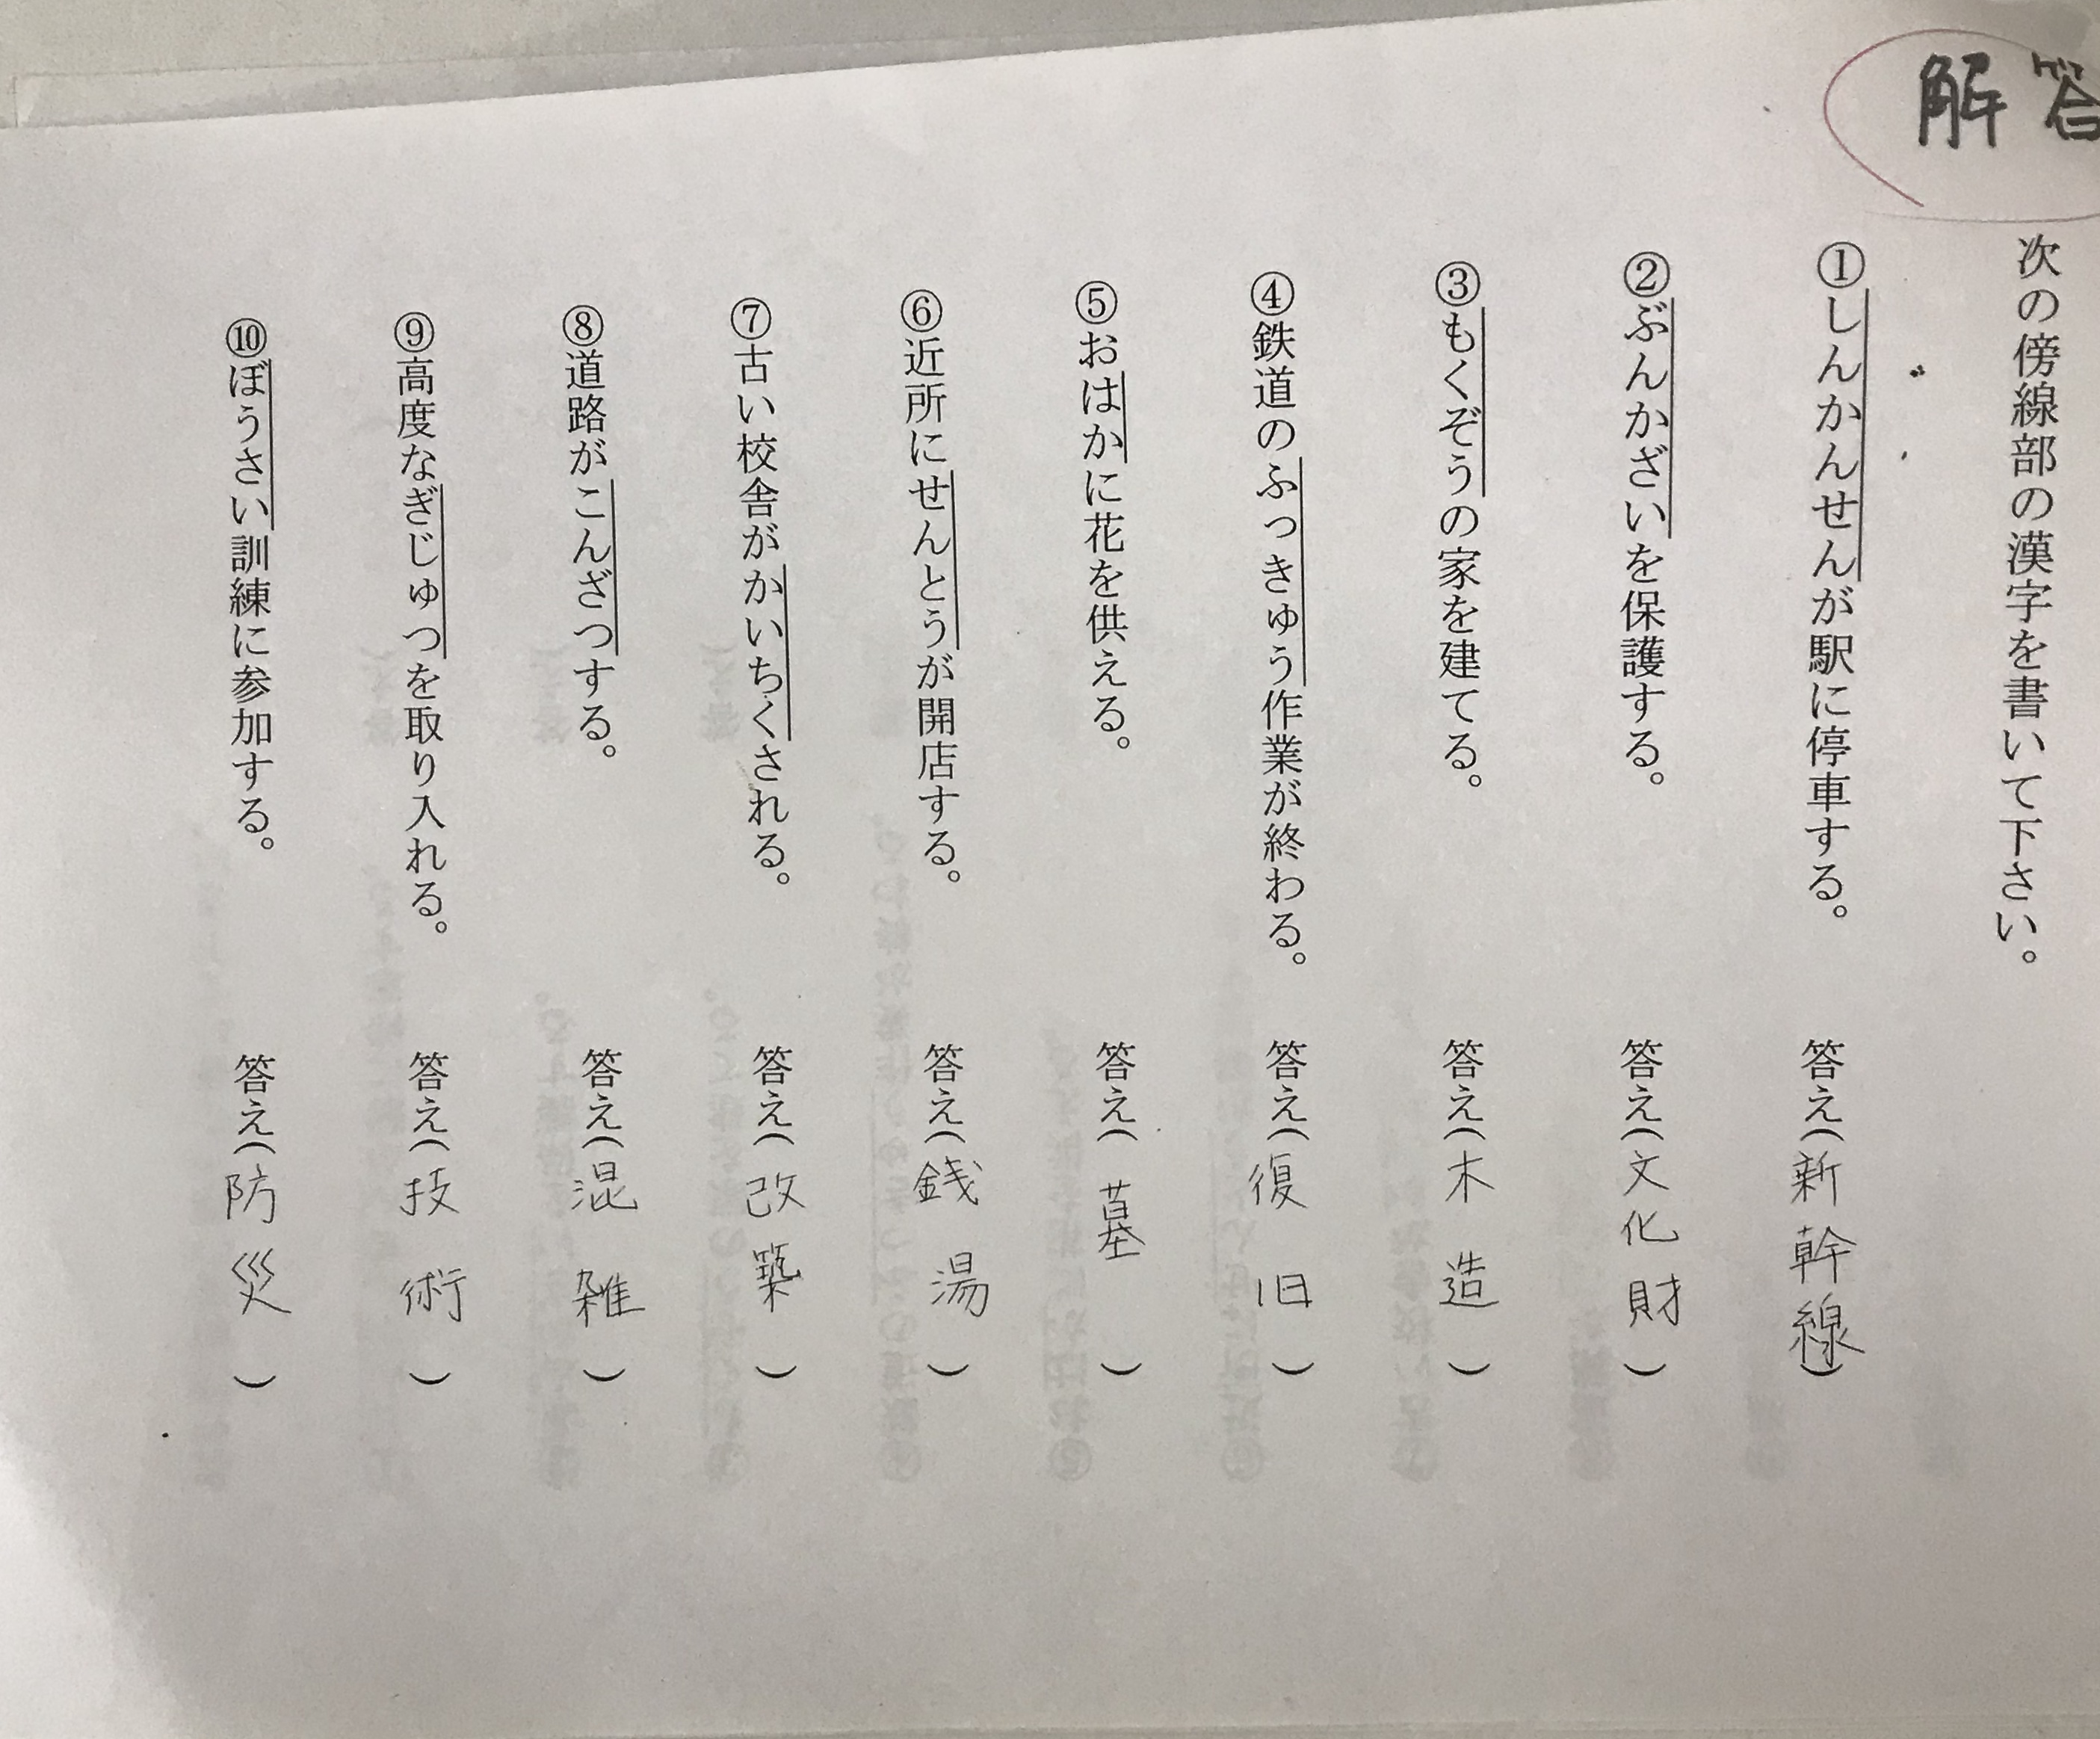 解答
次の傍線部の漢字を書いて下さい。
①しんかんせんが駅に停車する。 答え(新幹線)
②ぶんかざいを保護する。 答え(文化財)
③もくぞうの家を建てる。 答え(木造)
④鉄道のふっきゅう作業が終わる。 答え(復旧)
⑤おはかに花を供える。 答え(墓)
⑥近所にせんとうが開店する。 答え(銭湯)
⑦古い校舎がかいちくされる。 答え(改築)
⑧道路がこんざつする。 答え(混雑)
⑨高度なぎじゅつを取り入れる。 答え(技術)
⑩ぼうさい訓練に参加する。 答え(防災)